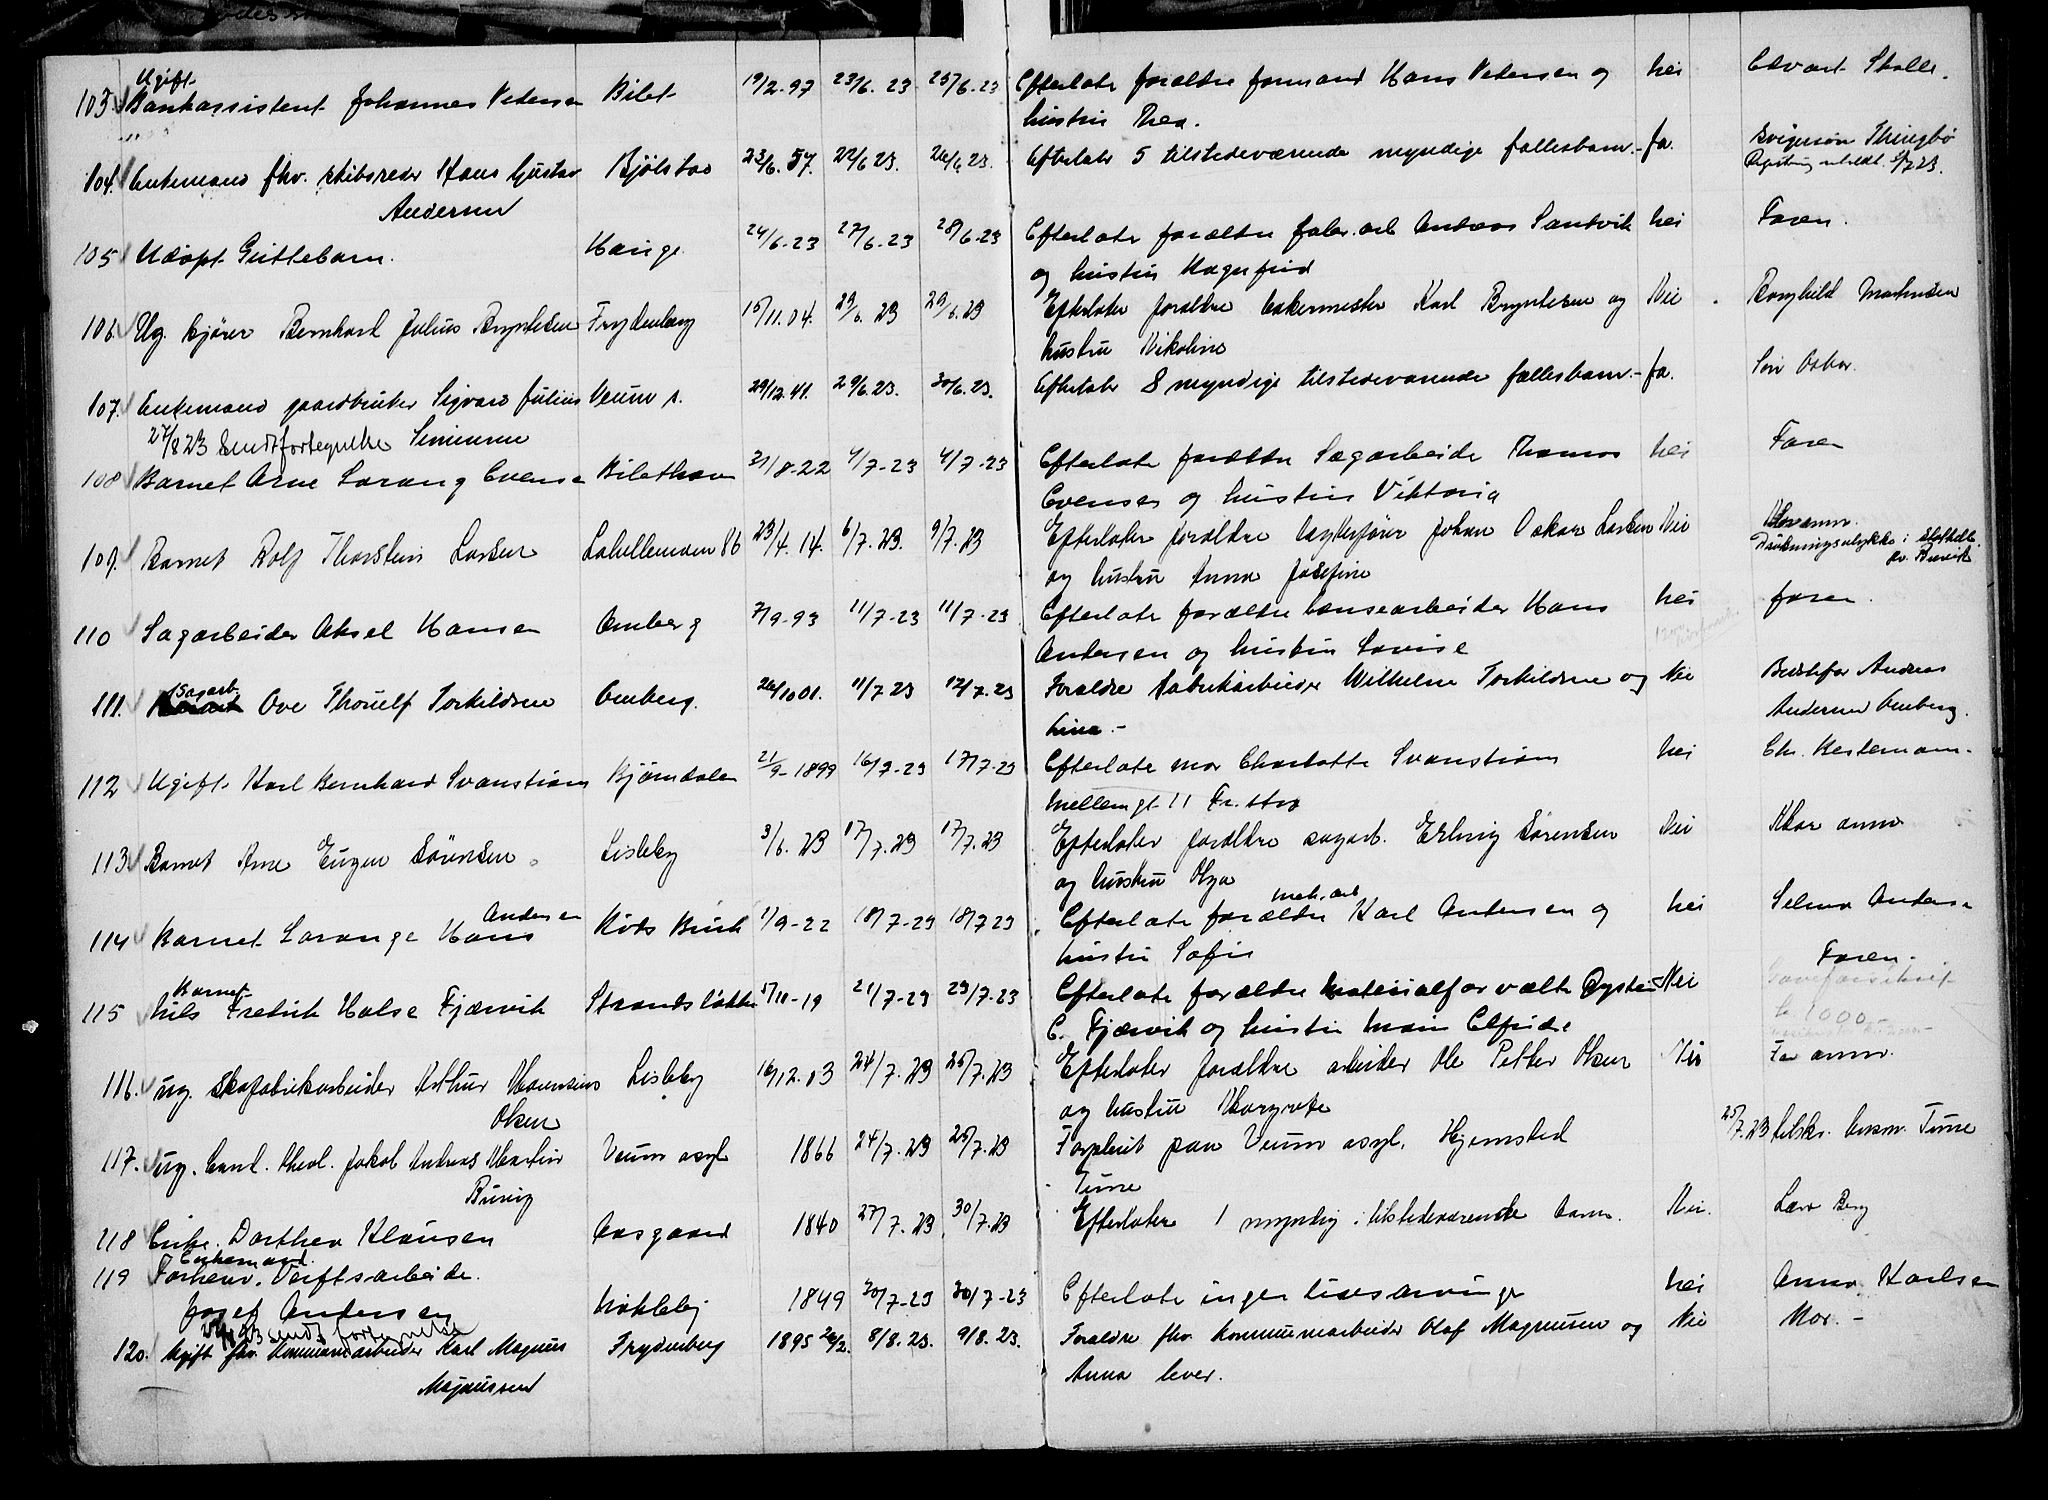 Ugift
103. Bankassistent Johannes Pedersen Bilet 19/2-97 23/6.23 25/6-23 Efterlate forældre formand Hans Pedersen og nei Edvart Skolle.
hustru Thea.
104. Enkemand fhv. skibsreder Hans Gustav Bjölstad 23/6.57. 22/6 23. 26/6 23. Efterlater 5 tilstedeværende myndige fællesbarn. - Ja.
Andersen
105 Udöpt Guttebarn. Hauge 24/6-23 27/6-23 28/6-23 Efterlate forældre fabr. arb Andreas Sandvik nei Faren.
og hustru Magnfrid
106. Ug. kjører Bernhard Julius Bryntesen Frydenberg 15/11.04. 29/6.23 29/6.23 Efterlater forældre bakermester Karl Bryntesen og Nei Borghild Mortensen
hustru Nikoline
107. Enkemand gaardbruker Sigvard Julius Veum s. 29/12.41. 29/6.23. 30/6.23. Efterlater 8 myndige tilstedeværende fællesbarn. - Ja. Sön Oskar.
27/8 23 Sendt fortegnelse Simensen
108 Barnet Arne Lorang Evensen Bilethavn 31/8-22 4/7-23 4/7-23 Efterlate forældre Sagarbeide Thomas nei Faren
Evensen og hustru Viktoria
109. Barnet Rolf Thorstein Larsen Labellemoen 86 23/4.14. 6/7.23. 9/7.23 Efterlater forældre Johan Oskar Larsen Nei
Drukningsulykke i
og hustru Anna Josefine
110 Sagarbeider Aksel Hansen Omberg 7/9-93 11/7-23 11/7-23 Efterlate forældre lensearbeider Hans nei faren.
Andersen og hustru Lovise
Sagarb.
111. Ove Thorulf Torkildsen Omberg. 26/10 01. 11/7 23 12/7.23 Forældre fabrikarbeider Wilhelm Torkildsen og Nei Bestefar Andreas
Lina. - Andersen Omberg.
112 Ugift Karl Bernhard Svanström Bjørndalen 21/9-1899 16/7-23 17/7-23 Efterlate mor Charlotte Svanström nei Chr. Bestemann.
Mellemgt 11 Fr.stad
113. Barnet Arne Eugen Sörensen. Lisleby 3/6.23 17/7.23 17/7.23 Efterlater forældre sagarb. Erling Sörensen Nei Mor anm
og hustru Olga
Andersen mek. arb
114 Barnet Lorang Hans 1/9-22 18/7-23 18/7 23 Efterlate forældre Karl Andersen og nei Selma Andersen
hustru Sofie Faren.
Barnet
115 Nils Fredrik Halse Fjærvik 5/11-19 21/7-23 23/7-23 Efterlate forældre Materialforvalte Øystein Nei
C. Fjærvik og hustru Marie Elfride kr 1000-
116. ug. skofabrikarbeider Arthur Maurentius Lisleby 16/12.03 24/7.23 25/7.23 Efterlater forældre arbeider Ole Petter Olsen Nei Far anm.
Olsen og hustru Margrete
117. ug. Cand. theol. Jakob Andreas Martin Veum asyl 1866 24/7.23 25/7.23 Forpleiet paa Veum asyl. Hjemsted 25/7.23 Lensm. Tune
Tune
118 Enke. Dorthea Klausen Aasgaard 1840 27/7.23 30/7.23 Efterlater 1 myndig i tilstedeværende barn. Nei. Lars Berg
Enkemand
119 Forhenv. Verftsarbeide.
Josef Andersen Nökleby 1849 30/7-23 30/7-23 Efterlate ingen livsarvinge nei Anna Karlsen
sendt fortegnelse
120. Ugift fhv. Kommunearbeider Karl Magnus Frydenberg 1895 26/2. 8/8.23. 9/8.23. Forældre fhv. kommunearbeider Olaf Magnussen og Nei Mor. -
Magnussen Anna lever.